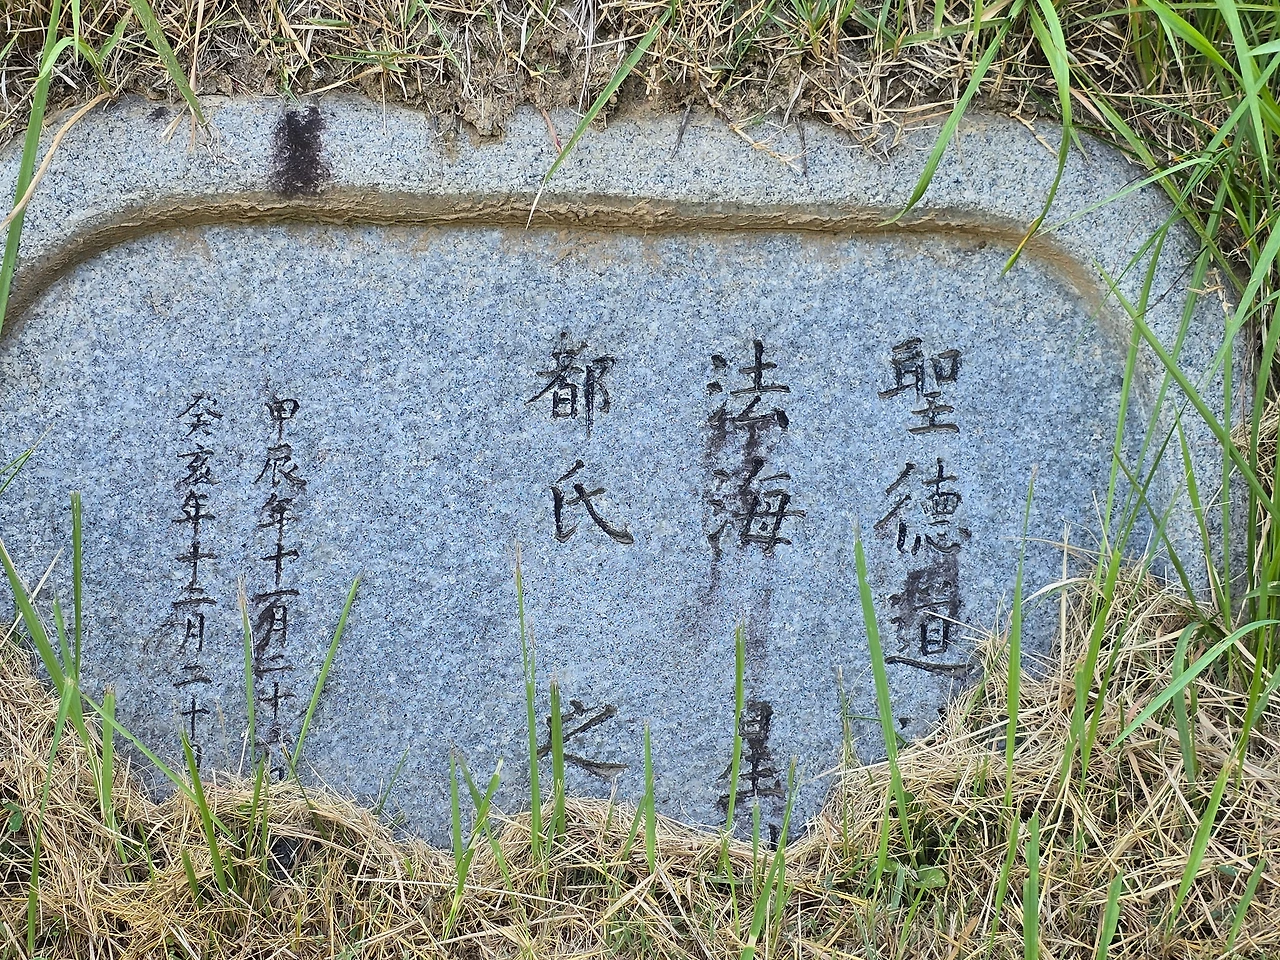 聖德道
法海 星
都氏 之
甲辰年十一月二十
癸亥年十二月二十